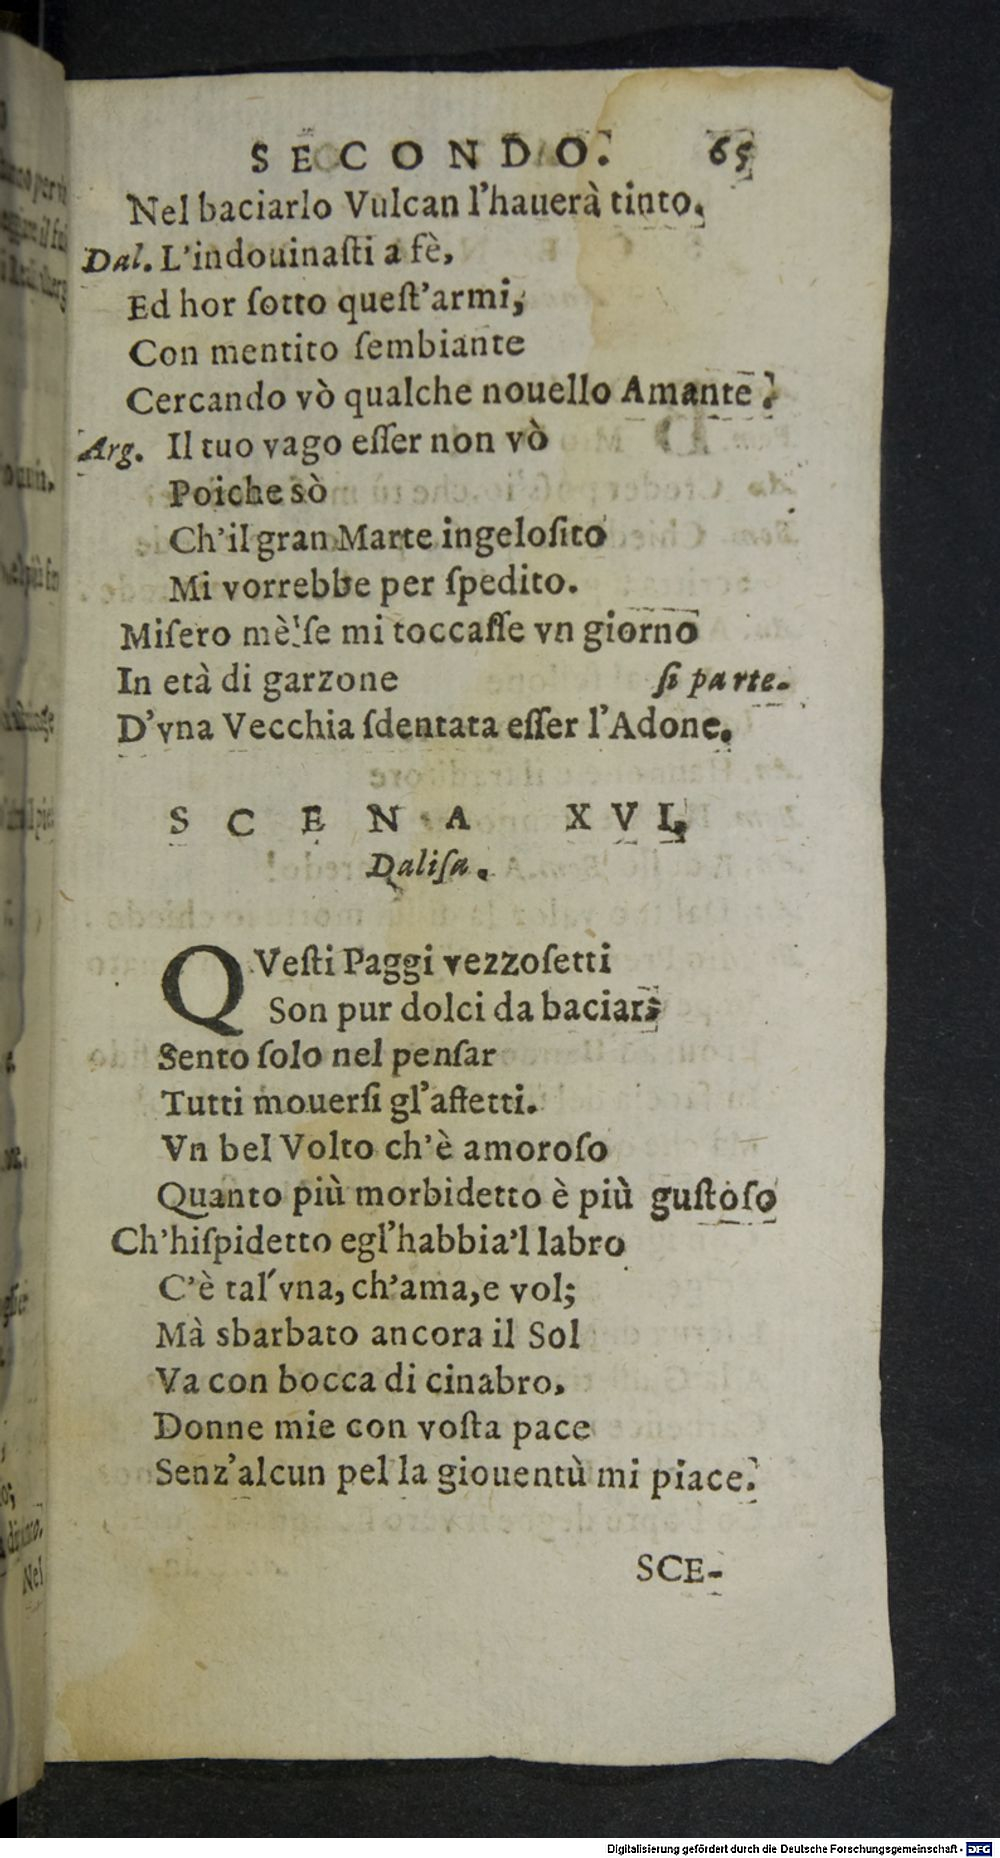 SECONDO. 65
Nel baciarlo Vulcan l'hauerà tinto.
Dal. L'indouinaſti a fè,
Ed hor ſotto queſt'armi,
Con mentito ſembiante
Cercando vò qualche nouello Amante.
Arg. Il tuo vago eſſer non vò
Poiche sò
Ch'il gran Marte ingeloſito
Mi vorrebbe per ſpedito.
Miſero mè! ſe mi toccaſſe vn giorno
In età di garzone ſi parte.
D'vna Vecchia ſdentata eſſer l'Adone.
SCENA XVI.
Daliſa.
QVeſti Paggi vezzoſetti
Son pur dolci da baciar;
Sento ſolo nel penſar
Tutti mouerſi gl'affetti.
Vn bel Volto ch'è amoroſo
Quanto più morbidetto è più guſtoſo
Ch'hiſpidetto egl'habbia'l labro
C'è tal'vna, ch'ama, e vol;
Mà sbarbato ancora il Sol
Va con bocca di cinabro,
Donne mie con voſta pace
Senz'alcun pel la giouentù mi piace.
SCE-
Digitalisierung gefördert durch die Deutsche Forschungsgemeinschaft - DFG